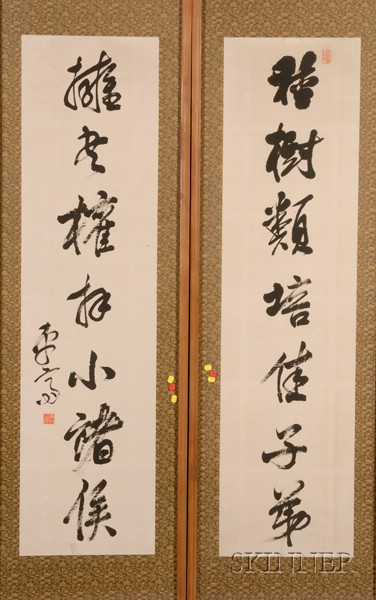 種樹類培佳子弟
擁書權拜小諸侯
SKINNER